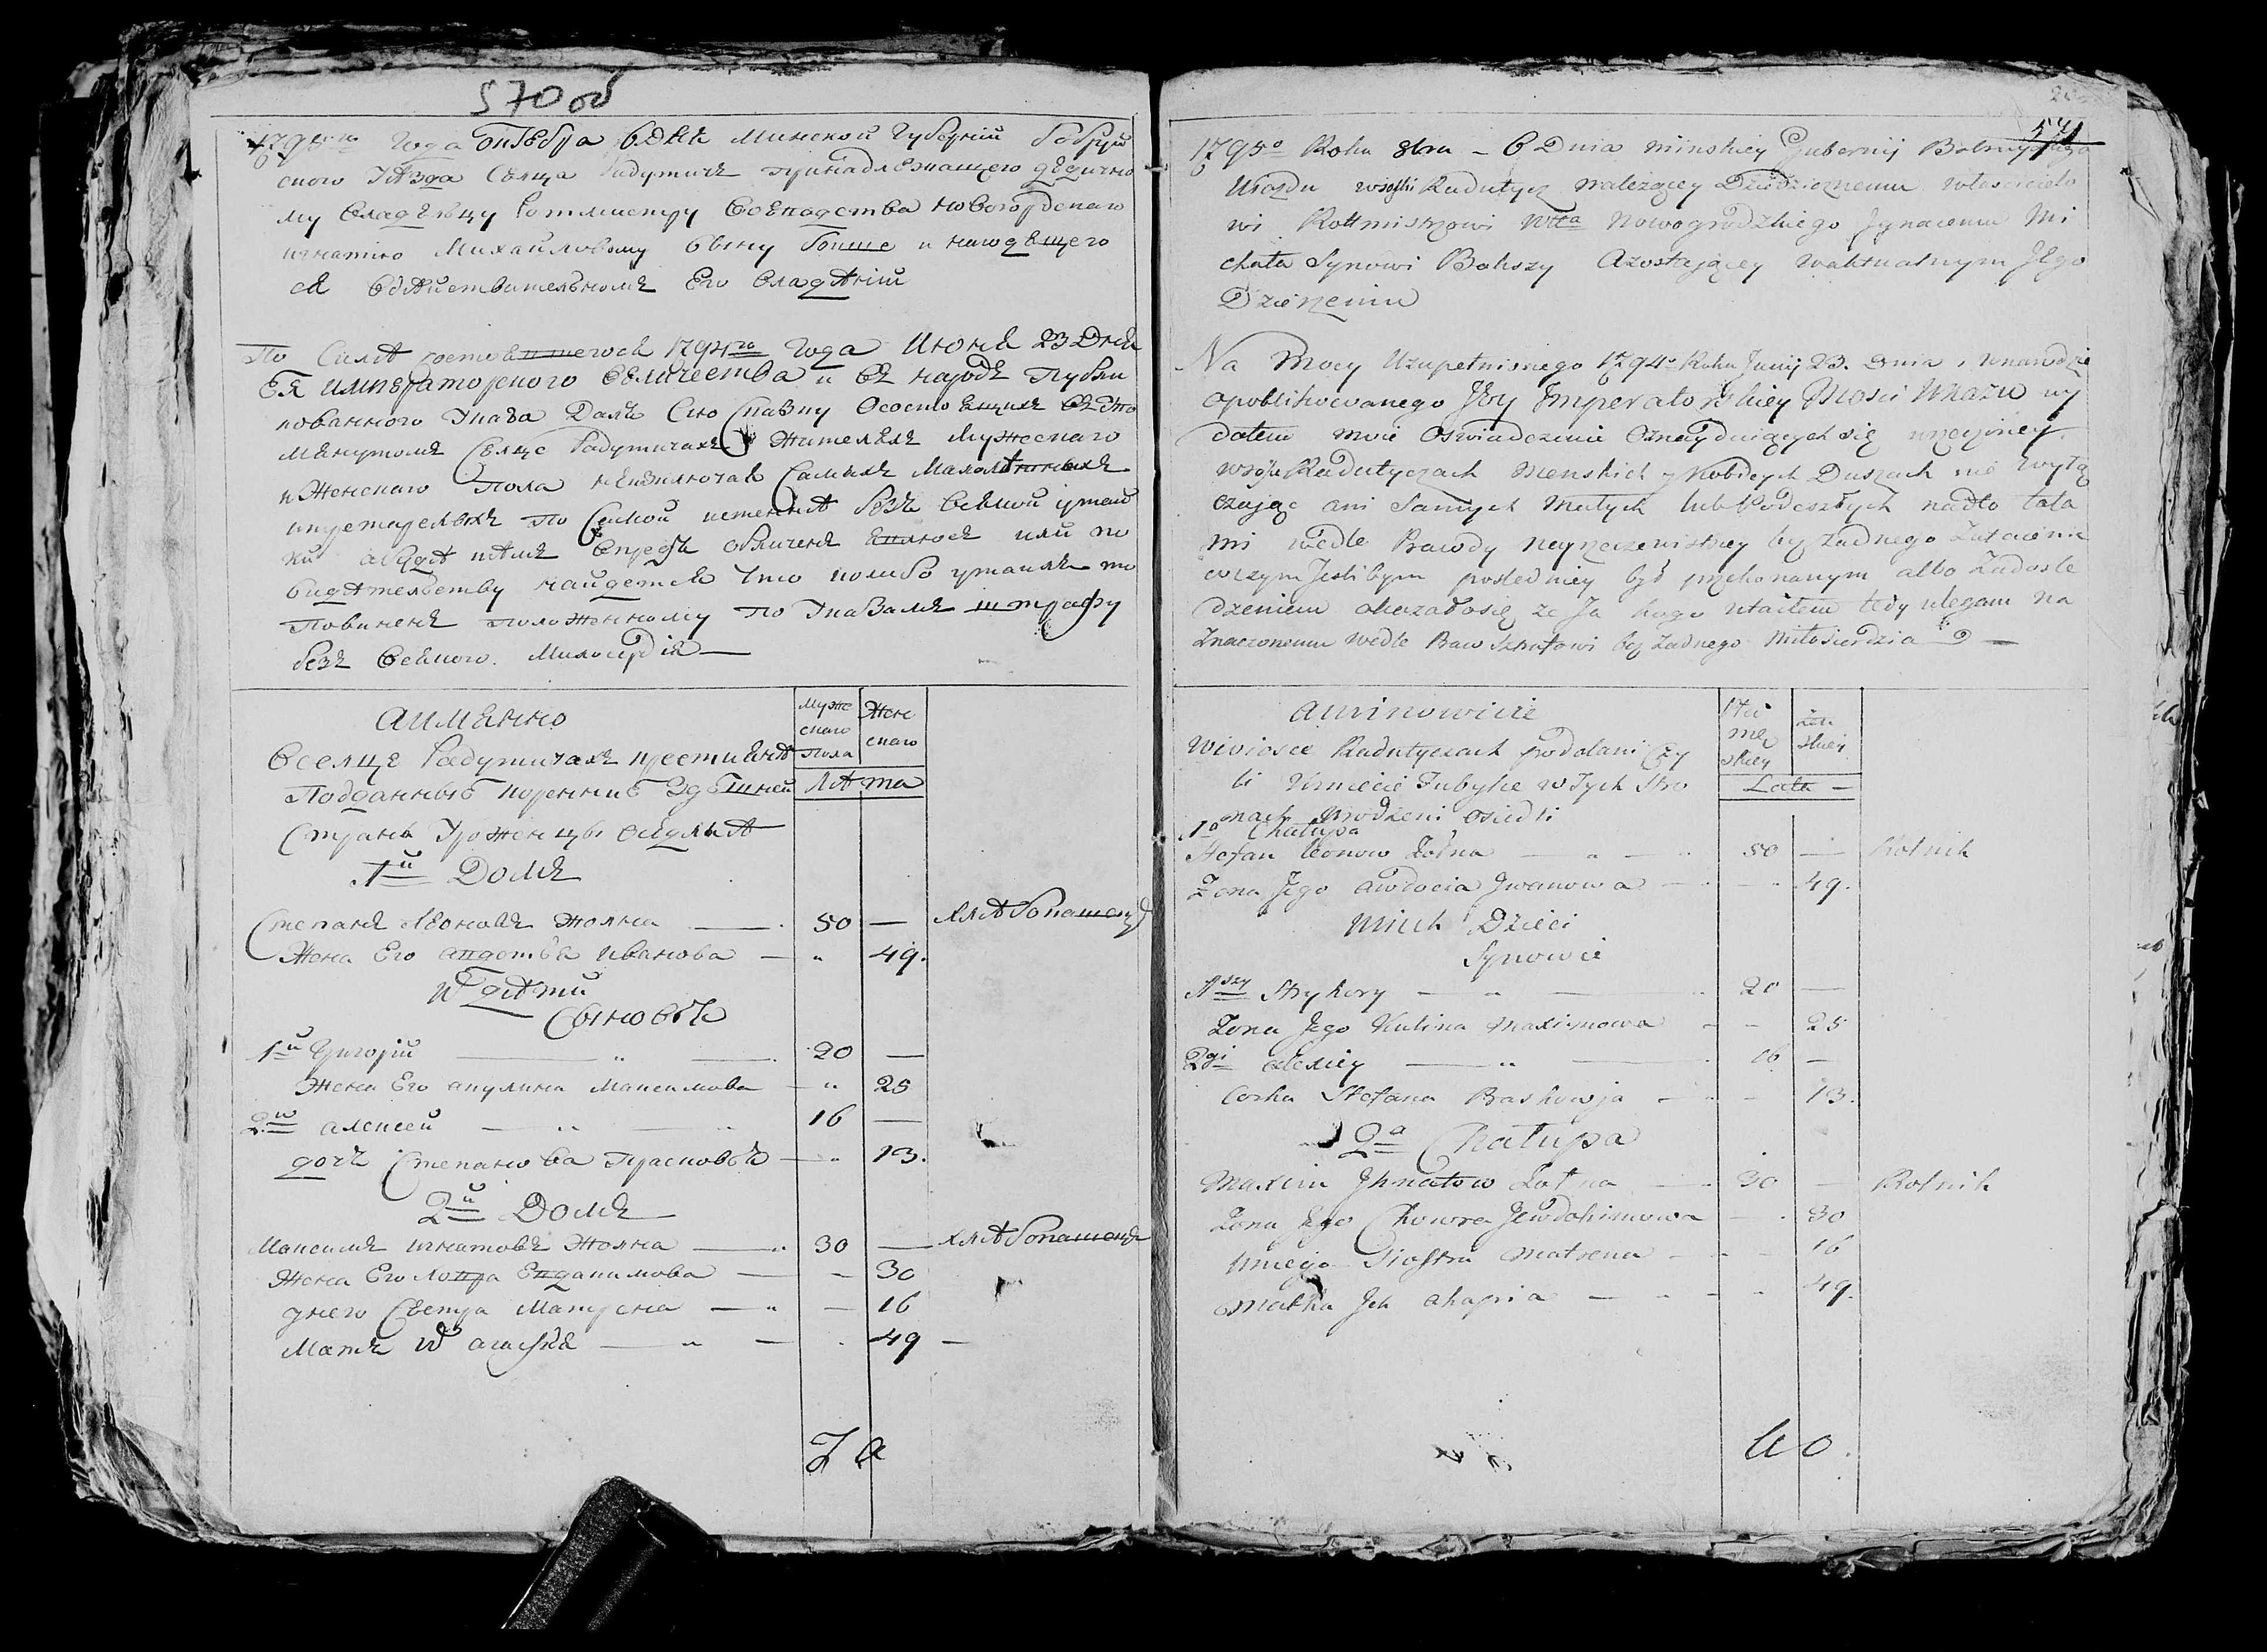 570 об
1795го Года Октебра 6 Дне Минской Губерний Бобруй
ского Уѣзда Селца Радутичъ принадлежащего дедично
му Владельцу Ротмистру Воеводства Новогродского
игнатию Михайловому Сыну Бокше и находещего
се вдѣйствительномъ Его владѣнии
По Силѣ состоевшегосе 1794го Года Июне 23 Дне
Ея императорского величества и въ народъ Публи
кованного Указа Далъ Сию Сказку О состоещихъ въ упо
менутомъ Селце Радутичахъ Жителехъ Мужеского
и Женского пола невключае Самыхъ Малолѣтныхъ
ипрестарелыхъ по Самой истеннѣ безъ всекой утай
ки
видѣтельству найдетсе Что коголибо утаилъ то
Повиненъ положенному по Указамъ штрафу
безъ всекого Милосердия
аименно
Вселце Радутичахъ крестиене
Подданные коренние Здешней
Страны Уроженцы оседлые
Муже
ского
пола
Жен
ского
Лѣта
1й Домъ
Степанъ Леоновъ Жолна 50 — хлѣбопашецъ
Жена Его авдотьа иванова — 49.
их дѣти
Сыновья
1й Григорий 20 —
Жена Его акулина Максимова — 25
2й алексей 16 —
дочь Степанова Прасковья — 13.
2й Домъ
Максимъ игнатовъ Жолна 30 — хлѣбопашецъ
Жена Его Ховра Евдакимова — 30
унего Сестра Матрена — 16
Мать их агафья — 49 —
За
571
1795o Roku 8bra – 6 Dnia Minskiey Gubernij Bobruyskiego
Ujazdu wiosки Radutycz nalezącey Dziedzicznemu własciciělo
wi Rottmistrzowi Wtwa Nowogrodzkiego Jgnacemu Mi
chała Synowi Bokszy Azostaiącey waktualnym Jego
Dzierzeniu
Na Mocy Uzupełnionego 1794o Roku Junij 23. Dnia, wnarodzie
opoblikowanego Jey Jmperatorskiey Mosci Ukazu wy
dałem moie Oswiadczenie Oznayduiących się wrzeczoney
wiosce Radutyczach Męnskich y Kobicych Duszach nie wyłą
czaiąc ani Samych Małych lub Podeszłych nadto lata
mi wedle Prawdy nayrzeczewistszey bez zadnego Zataienia
wczym Jeslibym posledniey był przekonanym albo Zadosle
dzeniem okazałosię ze Ja kogo utaiłem tedy ulegam na
znaczonemu wedle Praw Sztrafowi bez zadnego miłosierdzia
amianowicie
Wwiosce Radutyczach poddani Czy
li Kmiecie Zubyłe w Tych Stro
nach Urodzeni Osiedli
Płci
mę
skiey
żen
skiey
Lata
1a Chałupa
Stefan Leonow Żołna 50 — Rolnik
Zona Jego Awdocia Jwanowa — 49.
Unich Dzieci
Synowie
1szy Hryhory 20 —
Zona Jego Kulina Maximowa — 25
2gi Alexiey 16 —
Corka Stefana Praskowja — 13.
2a Chałupa
Maxim Jhnatow Żołna 30 — Rolnik
Zona Jego Chowra Jewdokimowa — 30
Uniego Siostra Matrena — 16
Matka Jch Ahapia — 49.